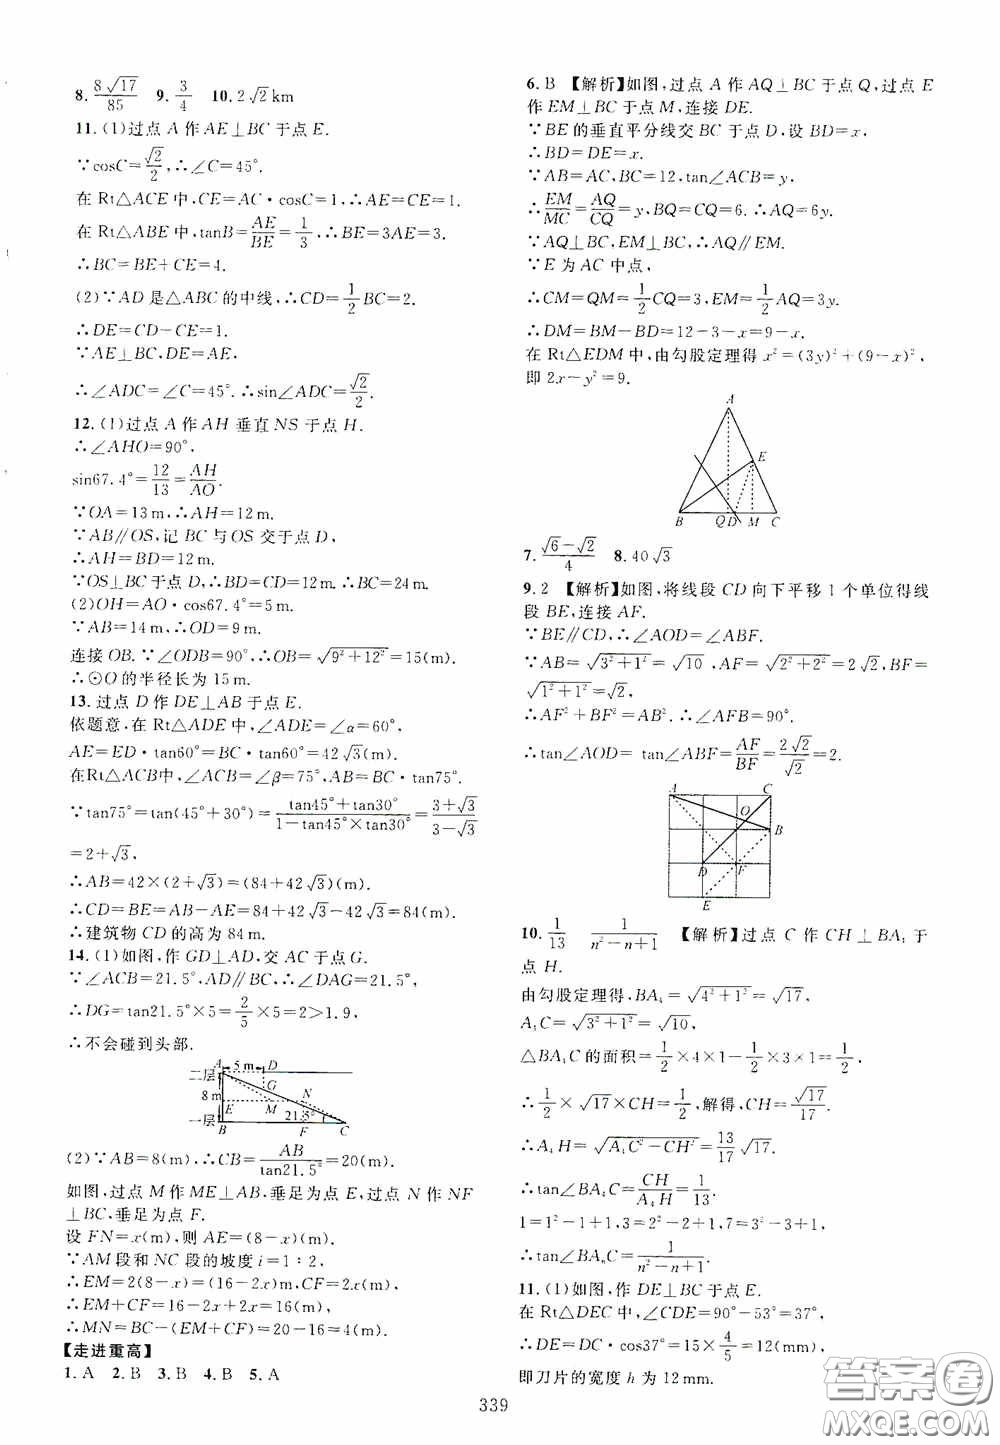 8. 8√17/85　9. 3/4　10. 2√2 km
11. (1)过点 A 作 AE⊥BC 于点 E.
∵cosC=√2/2,∴∠C=45°.
在 Rt△ACE 中,CE=AC·cosC=1,∴AE=CE=1.
在 Rt△ABE 中,tanB=AE/BE=1/3,∴BE=3AE=3.
∴BC=BE+CE=4.
(2)∵AD 是△ABC 的中线,∴CD=1/2BC=2.
∴DE=CD-CE=1.
∵AE⊥BC,DE=AE,
∴∠ADC=∠C=45°.∴sin∠ADC=√2/2.
12. (1)过点 A 作 AH 垂直 NS 于点 H.
∴∠AHO=90°.
sin67.4°=12/13=AH/AO.
∵OA=13 m,∴AH=12 m.
∵AB∥OS,记 BC 与 OS 交于点 D,
∴AH=BD=12 m.
∵OS⊥BC于点 D,∴BD=CD=12 m.∴BC=24 m.
(2)OH=AO·cos67.4°=5 m.
∵AB=14 m,∴OD=9 m.
连接 OB.∵∠ODB=90°,∴OB=√(9²+12²)=15(m).
∴⊙O 的半径长为 15 m.
13. 过点 D 作 DE⊥AB 于点 E.
依题意,在 Rt△ADE 中,∠ADE=∠α=60°,
AE=ED·tan60°=BC·tan60°=42√3(m).
在Rt△ACB中,∠ACB=∠β=75°,AB=BC·tan75°.
∵tan75°=tan(45°+30°)=(tan45°+tan30°)/(1-tan45°×tan30°)=(3+√3)/(3-√3)
=2+√3,
∴AB=42×(2+√3)=(84+42√3)(m).
∴CD=BE=AB-AE=84+42√3-42√3=84(m).
∴建筑物 CD 的高为 84 m.
14. (1)如图,作 GD⊥AD,交 AC于点 G.
∵∠ACB=21.5°,AD∥BC,∴∠DAG=21.5°.
∴DG=tan21.5°×5=2/5×5=2>1.9,
∴不会碰到头部.
A 5 m D
二层
G
8 m E M N
21.5°
一层 B F C
(2)∵AB=8(m),∴CB=AB/tan21.5°=20(m).
如图,过点 M 作 ME⊥AB,垂足为点 E,过点 N 作 NF
⊥BC,垂足为点 F.
设 FN=x(m),则 AE=(8-x)(m).
∵AM 段和 NC 段的坡度 i=1∶2,
∴EM=2(8-x)=(16-2x)m,CF=2x(m).
∴EM+CF=16-2x+2x=16(m),
∴MN=BC-(EM+CF)=20-16=4(m).
【走进重高】
1. A　2. B　3. B　4. B　5. A
6. B　【解析】如图,过点 A 作 AQ⊥BC 于点 Q,过点 E
作 EM⊥BC 于点 M,连接 DE.
∵BE 的垂直平分线交 BC 于点 D,设 BD=x,
∴BD=DE=x.
∵AB=AC,BC=12,tan∠ACB=y,
∴EM/MC=AQ/CQ=y,BQ=CQ=6.∴AQ=6y.
∵AQ⊥BC,EM⊥BC,∴AQ∥EM.
∵E 为 AC 中点,
∴CM=QM=1/2CQ=3,EM=1/2AQ=3y.
∴DM=BM-BD=12-3-x=9-x.
在 Rt△EDM 中,由勾股定理得 x²=(3y)²+(9-x)²,
即 2x-y²=9.
A
E
B Q D M C
7. (√6-√2)/4　8. 40√3
9. 2　【解析】如图,将线段 CD 向下平移 1 个单位得线
段 BE,连接 AF.
∵BE∥CD,∴∠AOD=∠ABF.
∵AB=√(3²+1²)=√10,AF=√(2²+2²)=2√2,BF=
√(1²+1²)=√2,
∴AF²+BF²=AB².∴∠AFB=90°.
∴tan∠AOD=tan∠ABF=AF/BF=2√2/√2=2.
A C
O
B
D F
E
10. 1/13　1/(n²-n+1)　【解析】过点 C 作 CH⊥BA₄ 于
点 H.
由勾股定理得,BA₄=√(4²+1²)=√17,
A₄C=√(3²+1²)=√10,
△BA₄C 的面积=1/2×4×1-1/2×3×1=1/2,
∴1/2×√17×CH=1/2,解得,CH=√17/17.
∴A₄H=√(A₄C²-CH²)=13/17√17.
∴tan∠BA₄C=CH/A₄H=1/13.
1=1²-1+1,3=2²-2+1,7=3²-3+1,
∴tan∠BAₙC=1/(n²-n+1).
11. (1)如图,作 DE⊥BC 于点 E.
在 Rt△DEC 中,∠CDE=90°-53°=37°,
∴DE=DC·cos37°=15×4/5=12(mm),
即刀片的宽度 h 为 12 mm.
339
答案圈
MXQE.COM